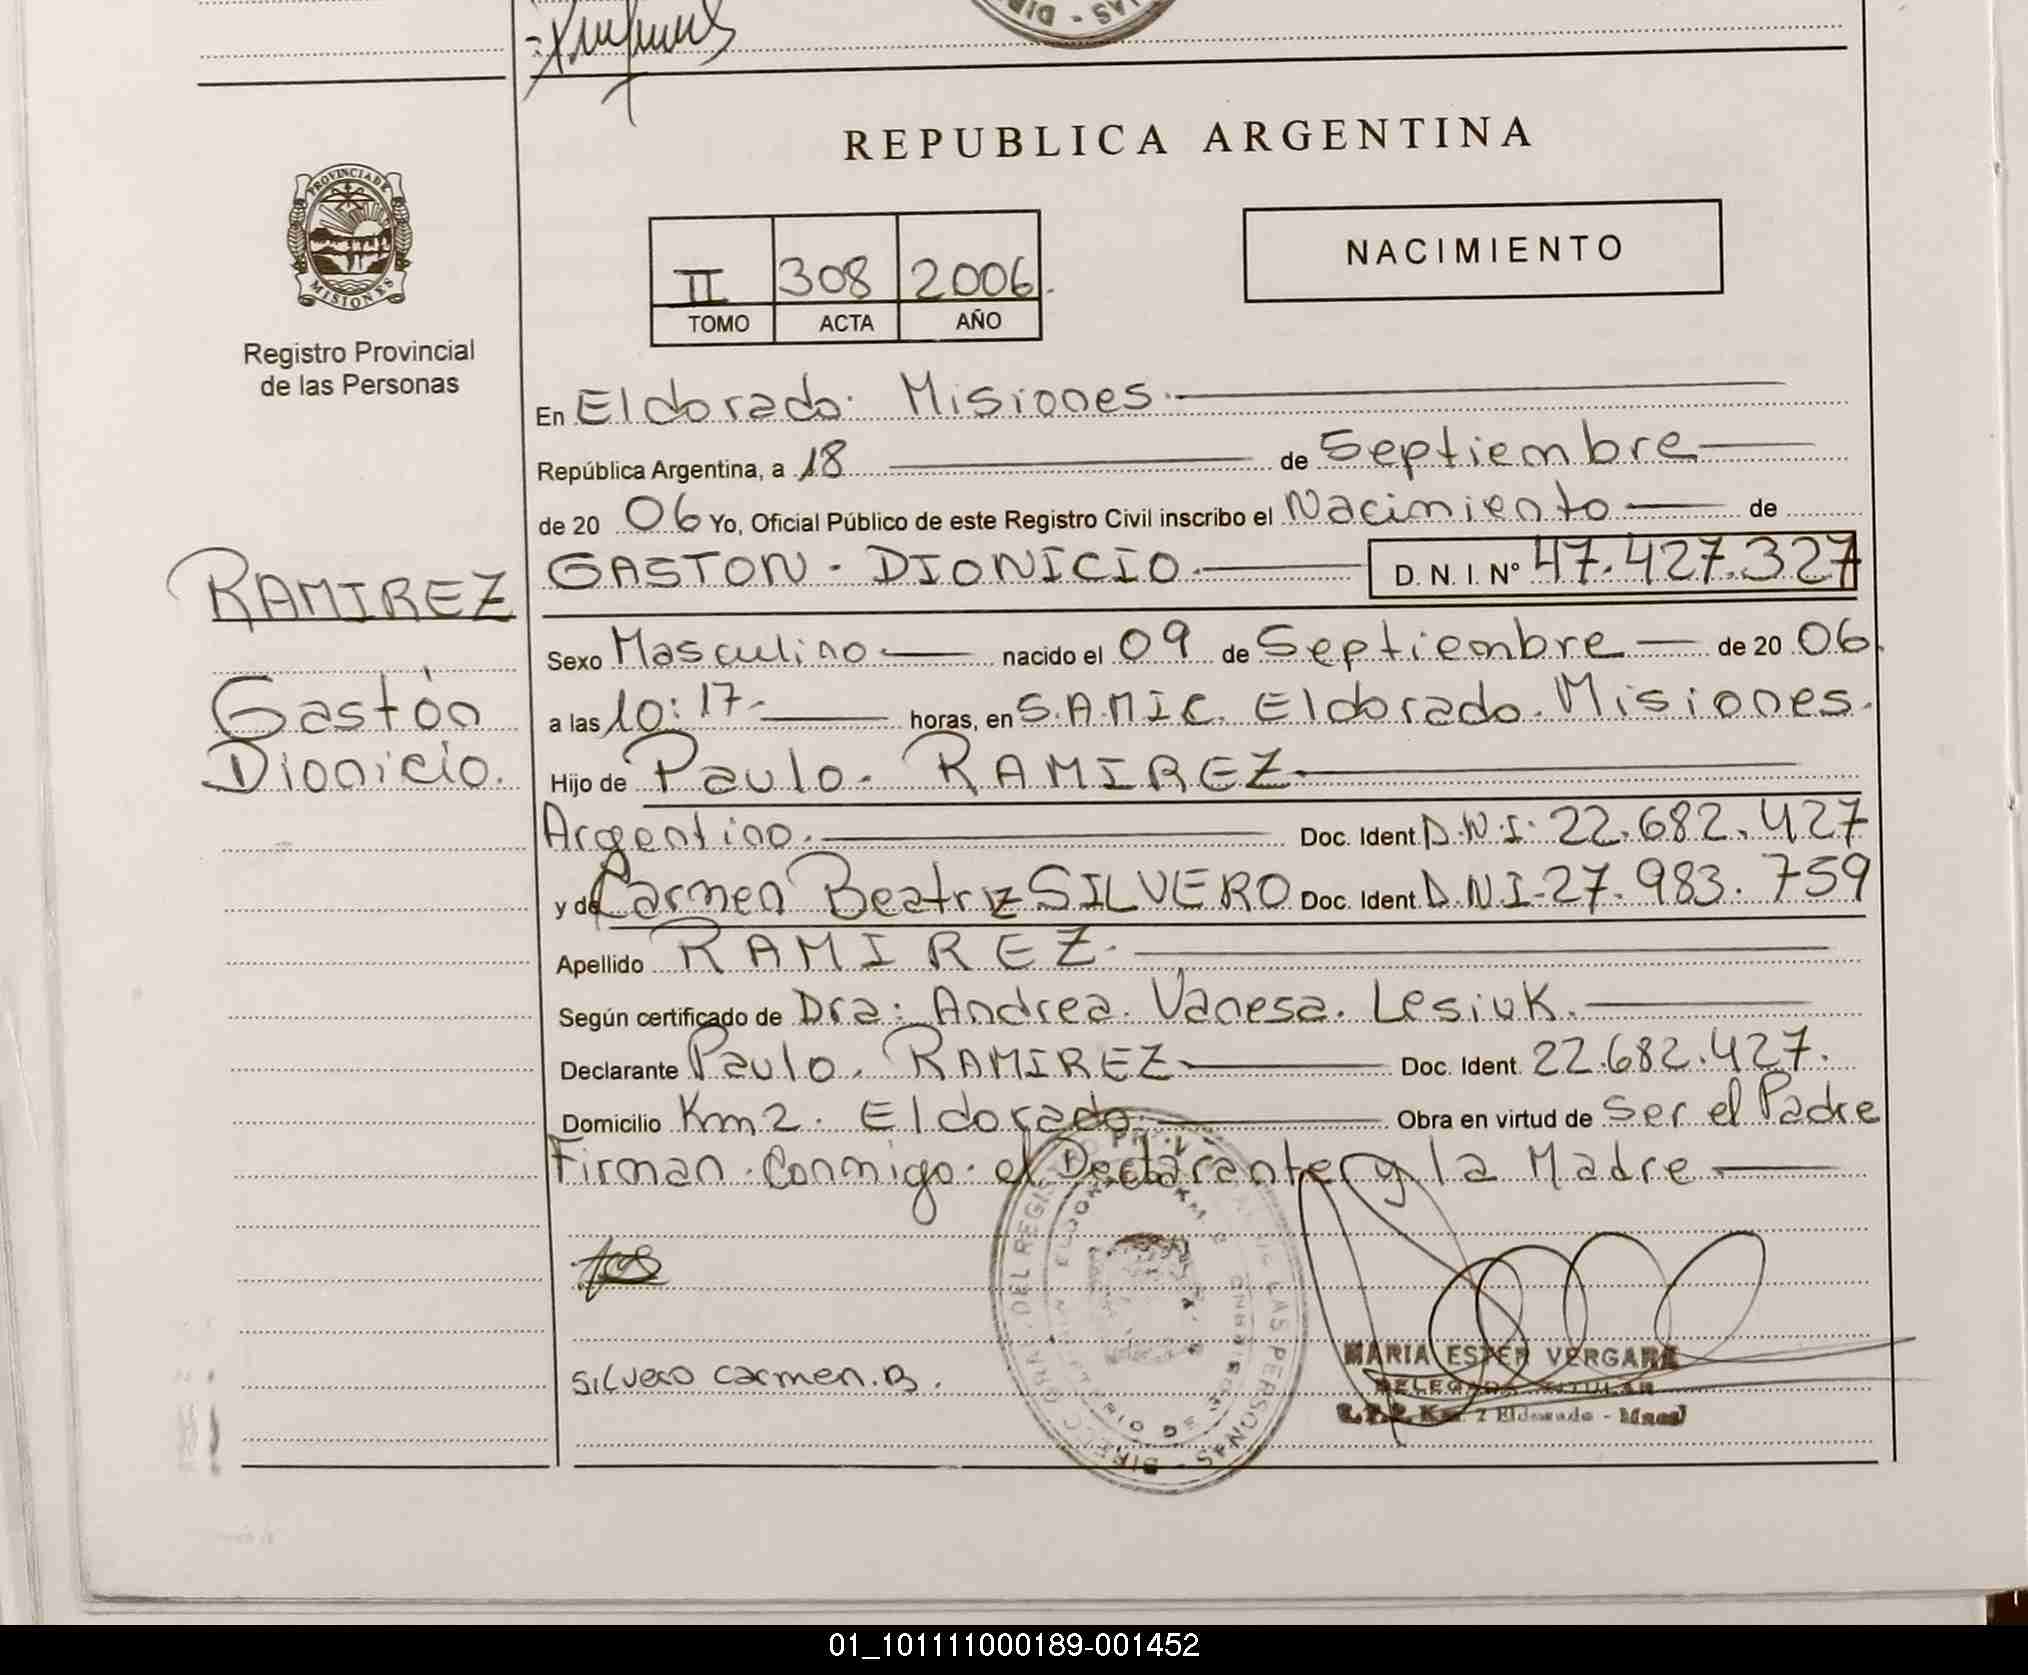 REPUBLICA ARGENTINA
PROVINCIA DE
MISIONES
Registro Provincial
de las Personas
II 308 2006.
TOMO ACTA AÑO
NACIMIENTO
En Eldorado. Misiones.
República Argentina, a 18 de Septiembre
de 20 06 Yo, Oficial Público de este Registro Civil inscribo el Nacimiento de
GASTON - DIONICIO. D.N.I. Nº 47.427.327
RAMIREZ
Gastón
Dionicio.
Sexo Masculino nacido el 09 de Septiembre de 20 06.
a las 10:17- horas, en S.A.M.I.C. Eldorado. Misiones.
Hijo de Paulo. RAMIREZ
Argentino. Doc. Ident. D.N.I. 22.682.427
y de Carmen Beatriz SILVERO Doc. Ident. D.N.I-27.983.759
Apellido RAMIREZ.
Según certificado de Dra: Andrea. Vanesa. Lesiuk.
Declarante Paulo. RAMIREZ Doc. Ident. 22.682.427.
Domicilio Km 2. Eldorado. Obra en virtud de Ser el Padre
Firman. Conmigo. el Declarante y la Madre
Silvero Carmen.B.
MARIA ESTER VERGARA
DELEGADA TITULAR
R.P.P. Km. 2 Eldorado - Mnes
01_101111000189-001452